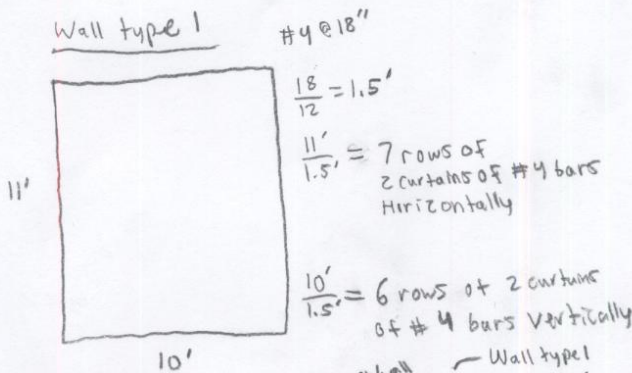 Wall type 1
#4 @ 18"
18/12 = 1.5'
11'/1.5' = 7 rows of
2 curtains of #4 bars
Horizontally
11'
10'/1.5' = 6 rows of 2 curtains
of #4 bars vertically
10'
Wall type 1